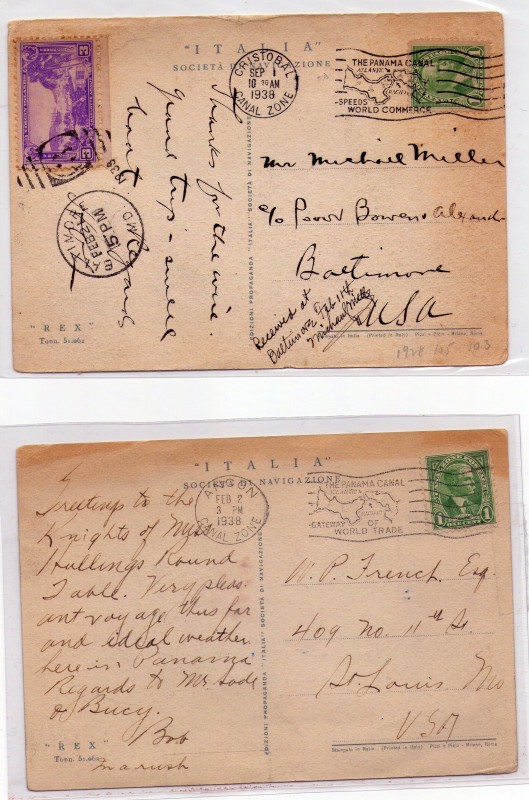 "ITALIA"
SOCIETÀ DI NAVIGAZIONE
CRISTOBAL
SEP 1
10 30 AM
1938
CANAL ZONE
THE PANAMA CANAL
ATLANTIC
PACIFIC
SPEEDS
WORLD COMMERCE
1
3¢
3¢
1938
FEB
PM
MD.
Thanks for the wire.
Grand trip - swell
boat Regards
Mr Michael Miller
c/o Bowen & Alexander
Baltimore
USA
Received at
Baltimore Feb 11th
Michael Miller
EDIZIONI PROPAGANDA "ITALIA" SOCIETÀ DI NAVIGAZIONE
"REX"
Tonn. 51.062
Stampato in Italia (Printed in Italy) Pizzi e Pizio - Milano, Roma
1928 105 103
"ITALIA"
SOCIETÀ DI NAVIGAZIONE
ANCON
FEB 2
3 PM
1938
CANAL ZONE
THE PANAMA CANAL
ATLANTIC
GATEWAY OF
WORLD TRADE
1 1
ONE CENT
Greetings to the
Knights of Mrs
Hullings Round
Table. Very pleas-
ant voyage thus far
and ideal weather
here in Panama
Regards to Mr. Sode
& Bucy.
Bob
Marush
W. P. French, Esq.
409 No. 11th St.
St Louis Mo
USA
EDIZIONI PROPAGANDA "ITALIA" SOCIETÀ DI NAVIGAZIONE
"REX"
Tonn. 51.062
Stampato in Italia (Printed in Italy) Pizzi e Pizio - Milano, Roma